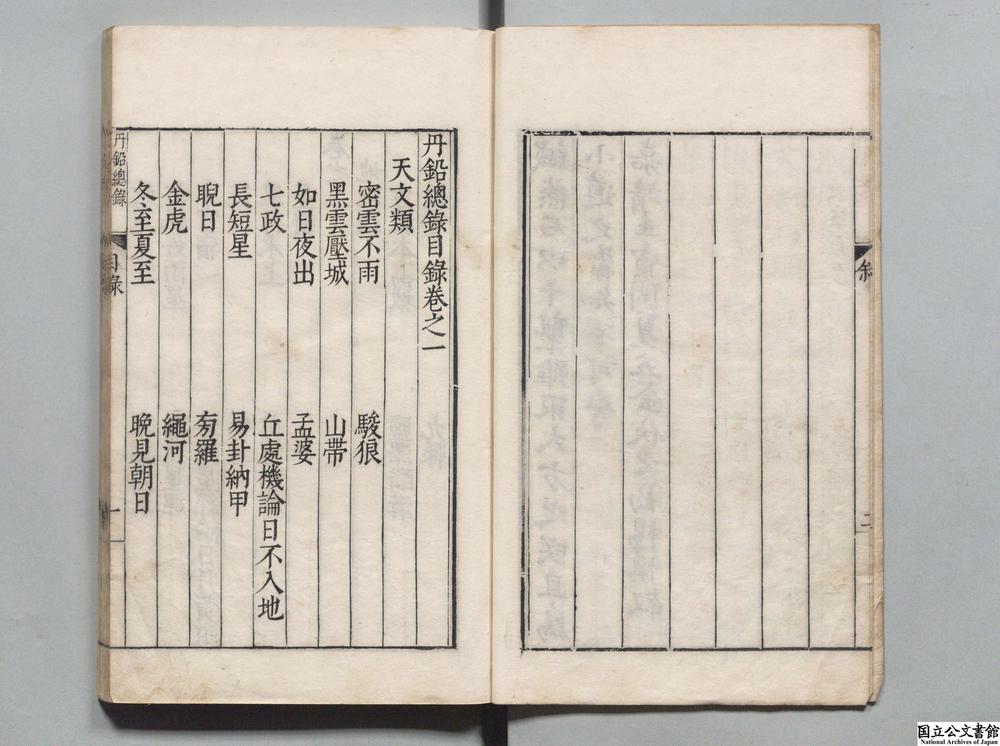 敘
二
丹鉛總錄目錄卷之一
天文類
密雲不雨 駿狼
黑雲壓城 山帶
如日夜出 孟婆
七政 丘處機論日不入地
長短星 易卦納甲
晲日 旁羅
金虎 繩河
冬至夏至 晚見朝日
丹鉛總錄
目錄
一
国立公文書館
National Archives of Japan